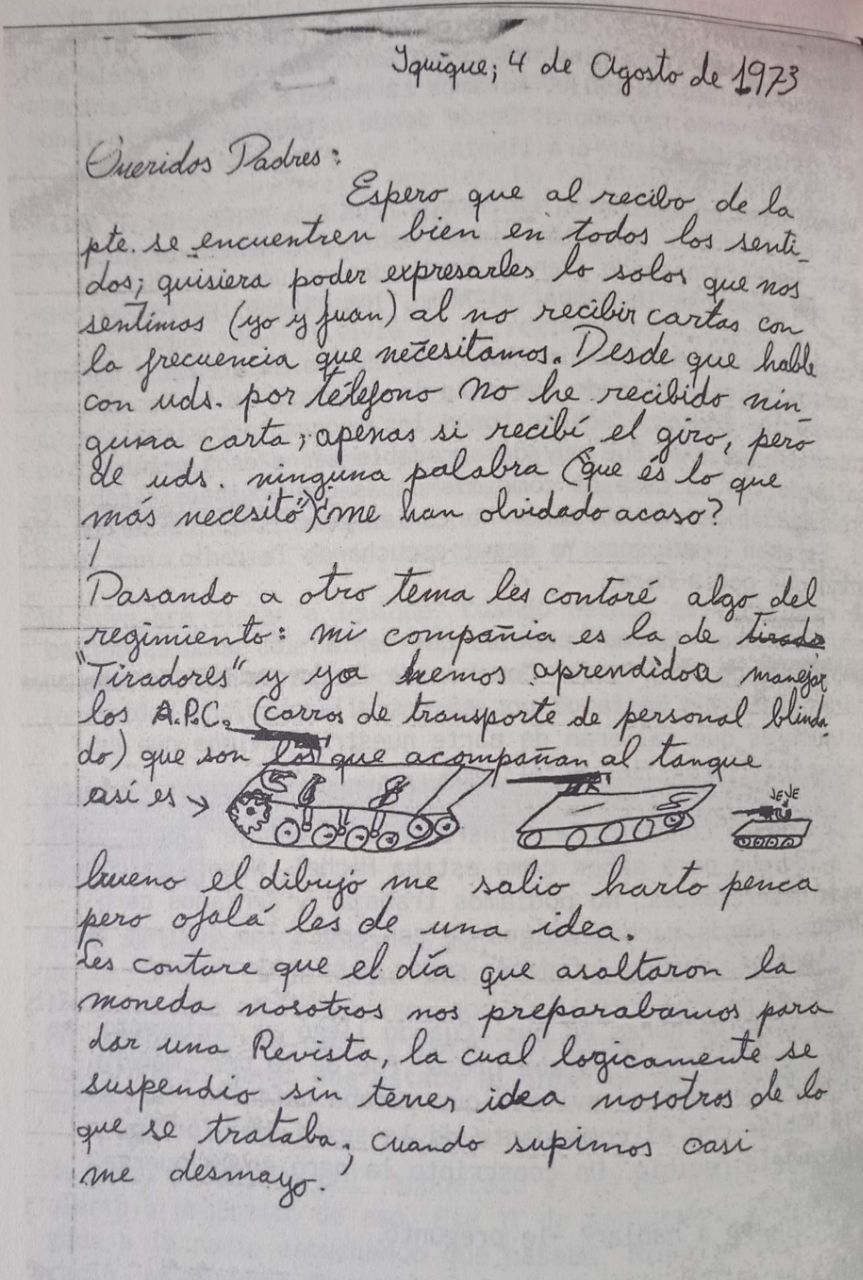 Iquique; 4 de Agosto de 1973
Queridos Padres:
Espero que al recibo de la
pte. se encuentren bien en todos los senti_
dos; quisiera poder expresarles lo solos que nos
sentimos (yo y Juan) al no recibir cartas con
la frecuencia que necesitamos. Desde que hable
con uds. por télefono no he recibido nin_
guna carta; apenas si recibí el giro, pero
de uds. ninguna palabra (que es lo que
más necesito) ¿me han olvidado acaso?
Pasando a otro tema les contaré algo del
regimiento: mi compañia es la de
"Tiradores" y ya hemos aprendido a manejar
los A.P.C. (carros de transporte de personal blinda_
do) que son los que acompañan al tanque
así es →
JEJE
bueno el dibujo me salio harto penca
pero ojalá les de una idea.
Les contare que el día que asaltaron la
moneda nosotros nos preparabamos para
dar una Revista, la cual logicamente se
suspendio sin tener idea nosotros de lo
que se trataba; cuando supimos casi
me desmayo.